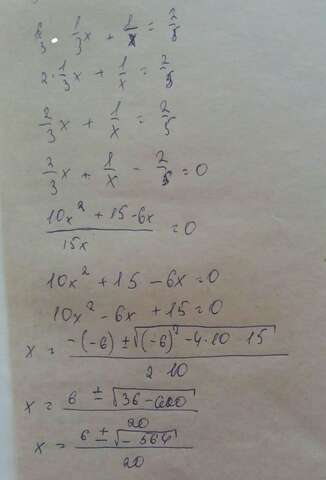 6/3 · 1/3x + 1/x = 2/5
2 · 1/3x + 1/x = 2/5
2/3x + 1/x = 2/5
2/3x + 1/x - 2/5 = 0
10x² + 15 - 6x / 15x = 0
10x² + 15 - 6x = 0
10x² - 6x + 15 = 0
x = -(-6) ± √(-6)² - 4 · 10 · 15 / 2 · 10
x = 6 ± √36 - 600 / 20
x = 6 ± √-564 / 20